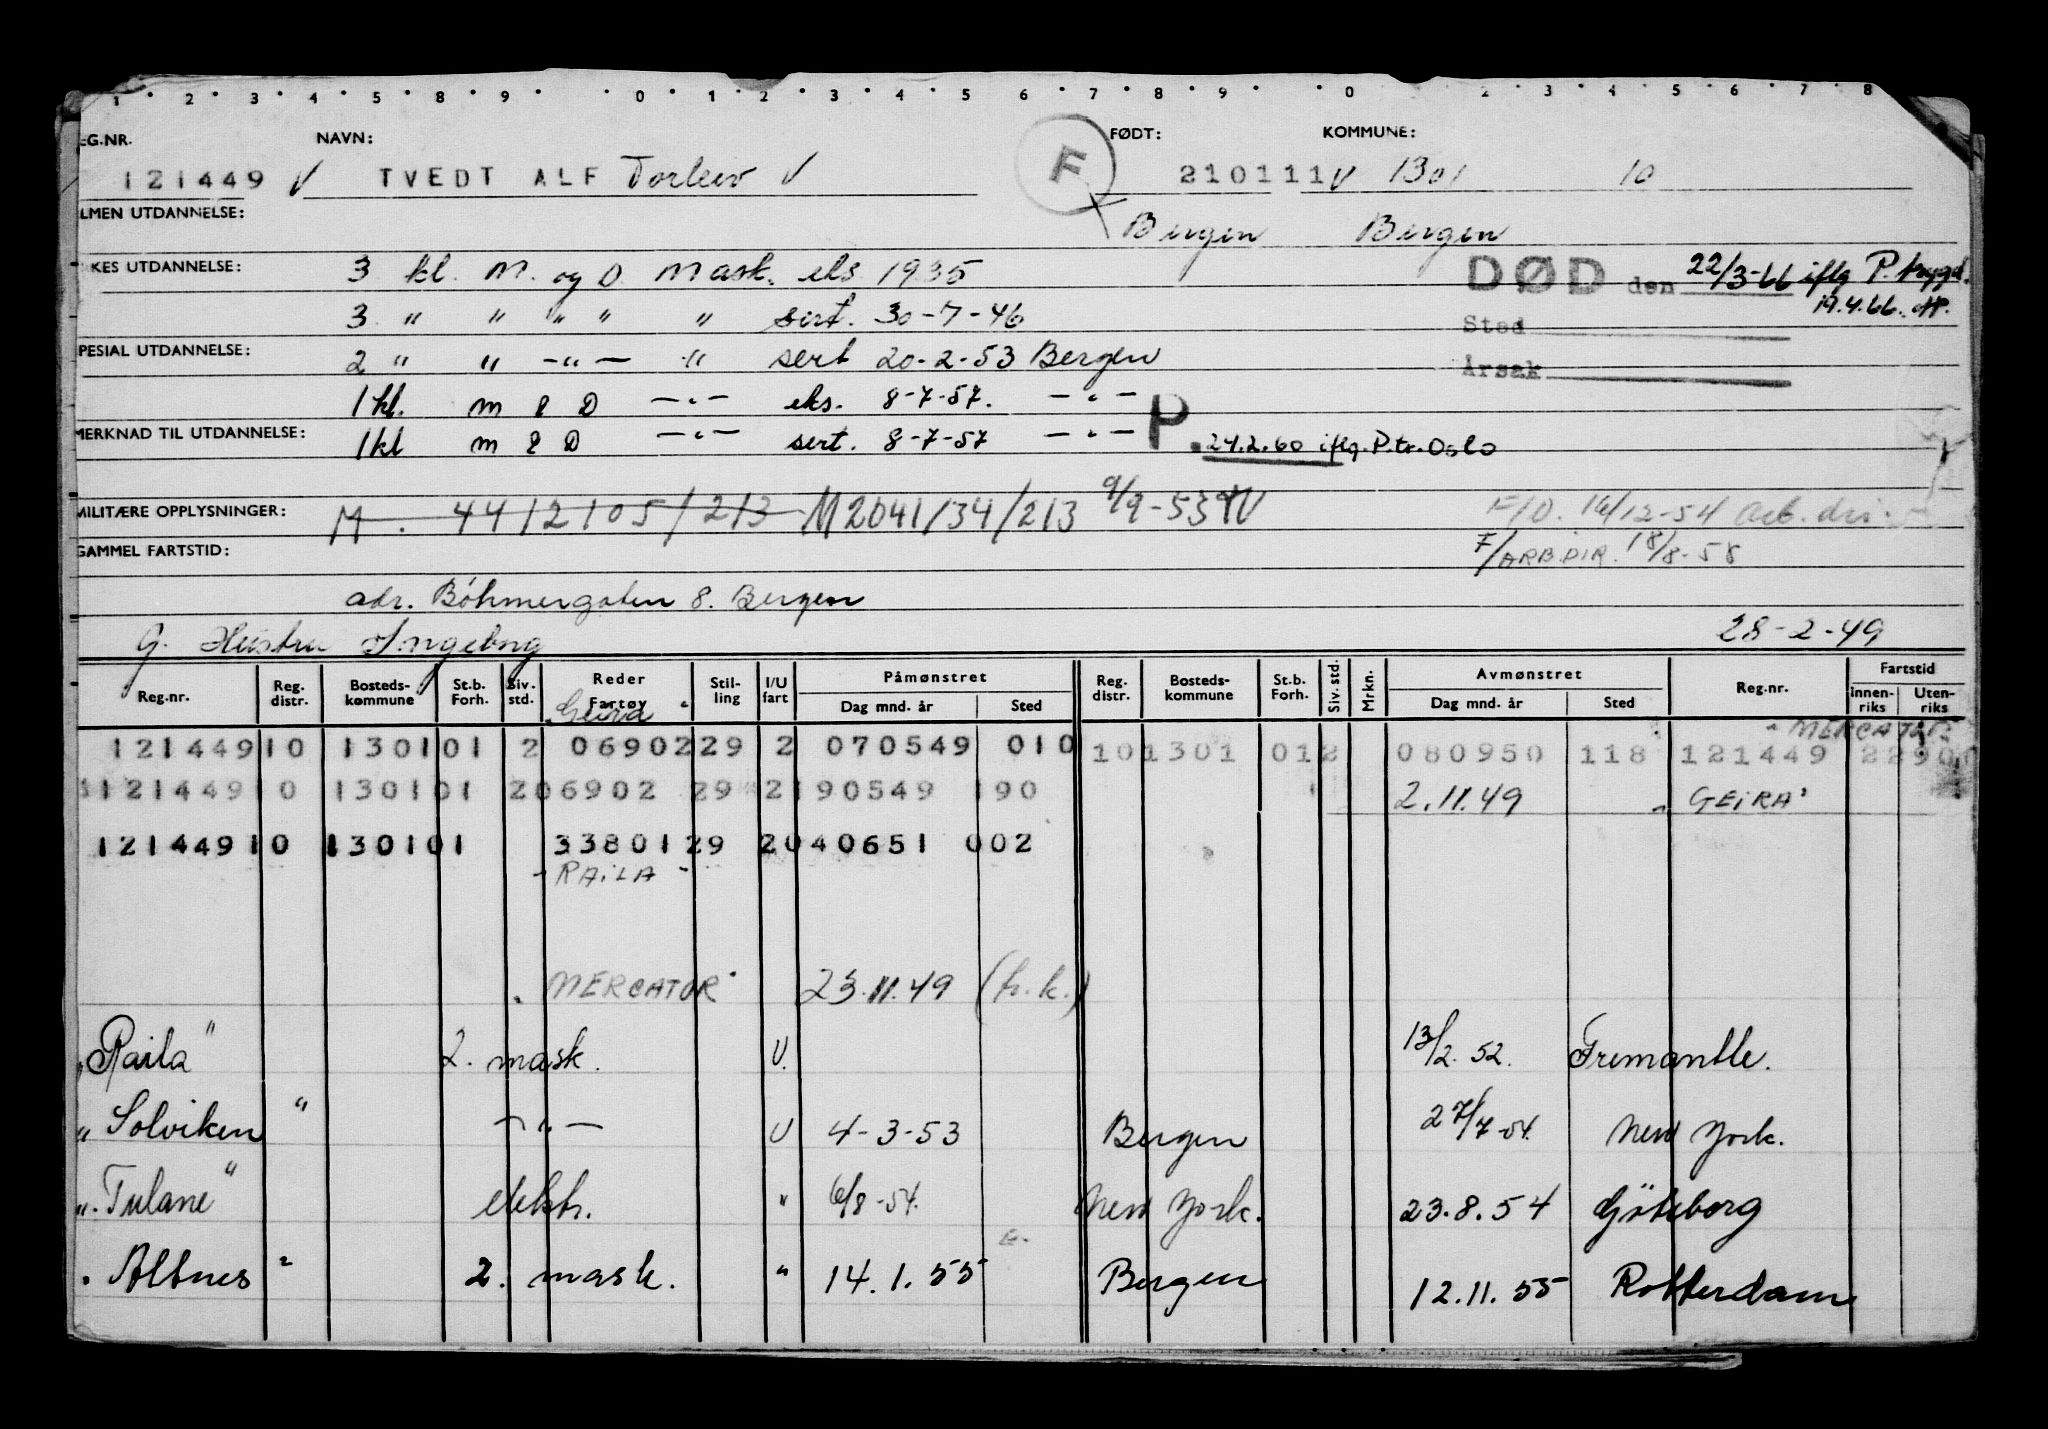 1 2 3 4 5 8 9 0 1 2 3 4 5 6 7 8 9 0 2 3 4 5 6 7 8
EG.NR. NAVN: F FØDT: KOMMUNE:
121449 V TVEDT ALF Torleiv V 210111 V 1301 10
LMEN UTDANNELSE: Bergen Bergen
KES UTDANNELSE: 3 kl. M. og D. Mask. eks 1935
DØD den 22/3-66 iflg P. trygd.
19.4.66.
3 " " " " " sert. 30-7-46
Sted
PESIAL UTDANNELSE: 2 " " -"- " sert 20-2-53 Bergen
Årsak
1 kl. m & D -"- eks. 8-7-57. -"-
MERKNAD TIL UTDANNELSE: 1 kl m & D -"- sert. 8-7-57 -"- P. 24.2.60 iflg. P.tr. Oslo
MILITÆRE OPPLYSNINGER: M. 4412105/213 M2041/34/213 9/9-53 F/D. 16/12-54 Arb. dir.
GAMMEL FARTSTID: F/ARB.DIR. 18/8-58
adr. Böhmergaten 8. Bergen
G. Hustru Ingebrg 28-2-49
Reg.nr. Reg. distr. Bosteds-kommune St.b. Forh. Siv. std. Reder Fartøy Stil-ling I/U fart Påmønstret Dag mnd. år Sted Reg. distr. Bosteds-kommune St.b. Forh. Siv. std. Mrkn. Avmønstret Dag mnd. år Sted Reg.nr. Fartstid Innen-riks Uten-riks
"Geira"
"MERCATOR"
121449 10 1301 01 2 06902 29 2 070549 010 10 1301 01 2 080950 118 121449 2290
121449 10 1301 01 2 06902 29 2 190549 190 2.11.49 "GEIRA"
121449 10 1301 01 33801 29 2 040651 002
"RAILA"
"MERCATOR" 23.11.49 (h.k.)
"Raila" 2. mask. U. 13/2. 52. Fremantle.
"Solviken" -"- U 4-3-53 Bergen 27/7-54. New York.
"Tulane" elektr. " 6/8-54. New York. 23.8.54 Göteborg
"Altnes" 2. mask. " 14.1.55 Bergen 12.11.55 Rotterdam